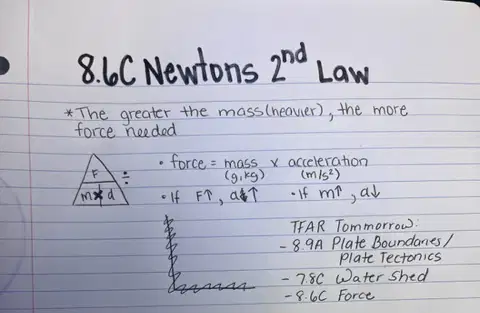 8.6C Newtons 2nd Law
*The greater the mass(heavier), the more
force needed
F
÷
m x a
• force = mass x acceleration
(g,kg) (m/s²)
• If F↑, a↑ • If m↑, a↓
TFAR Tommorrow:
- 8.9A Plate Boundaries/
Plate Tectonics
- 7.8C Water Shed
- 8.6C Force